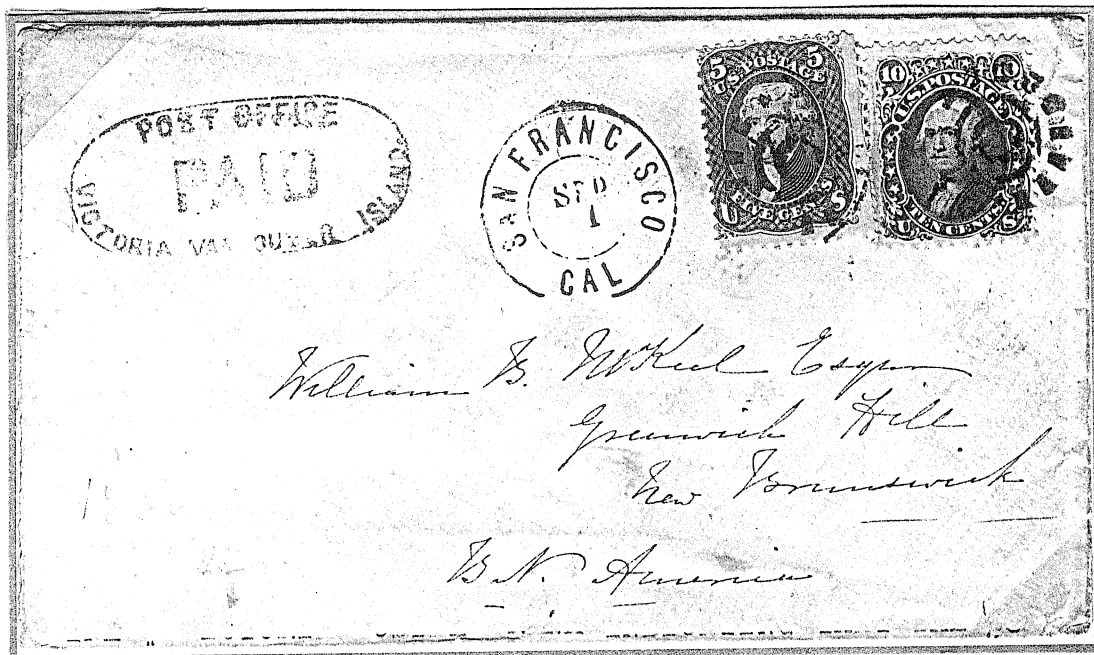 POST OFFICE
PAID
VICTORIA VANCOUVER ISLAND
SAN FRANCISCO
SEP
1
CAL
5 5
U.S. POSTAGE
FIVE CENTS
U S
10 10
U.S. POSTAGE
TEN CENTS
U S
William B. McKeel Esqr
Greenwich Hill
New Brunswick
B. N. America